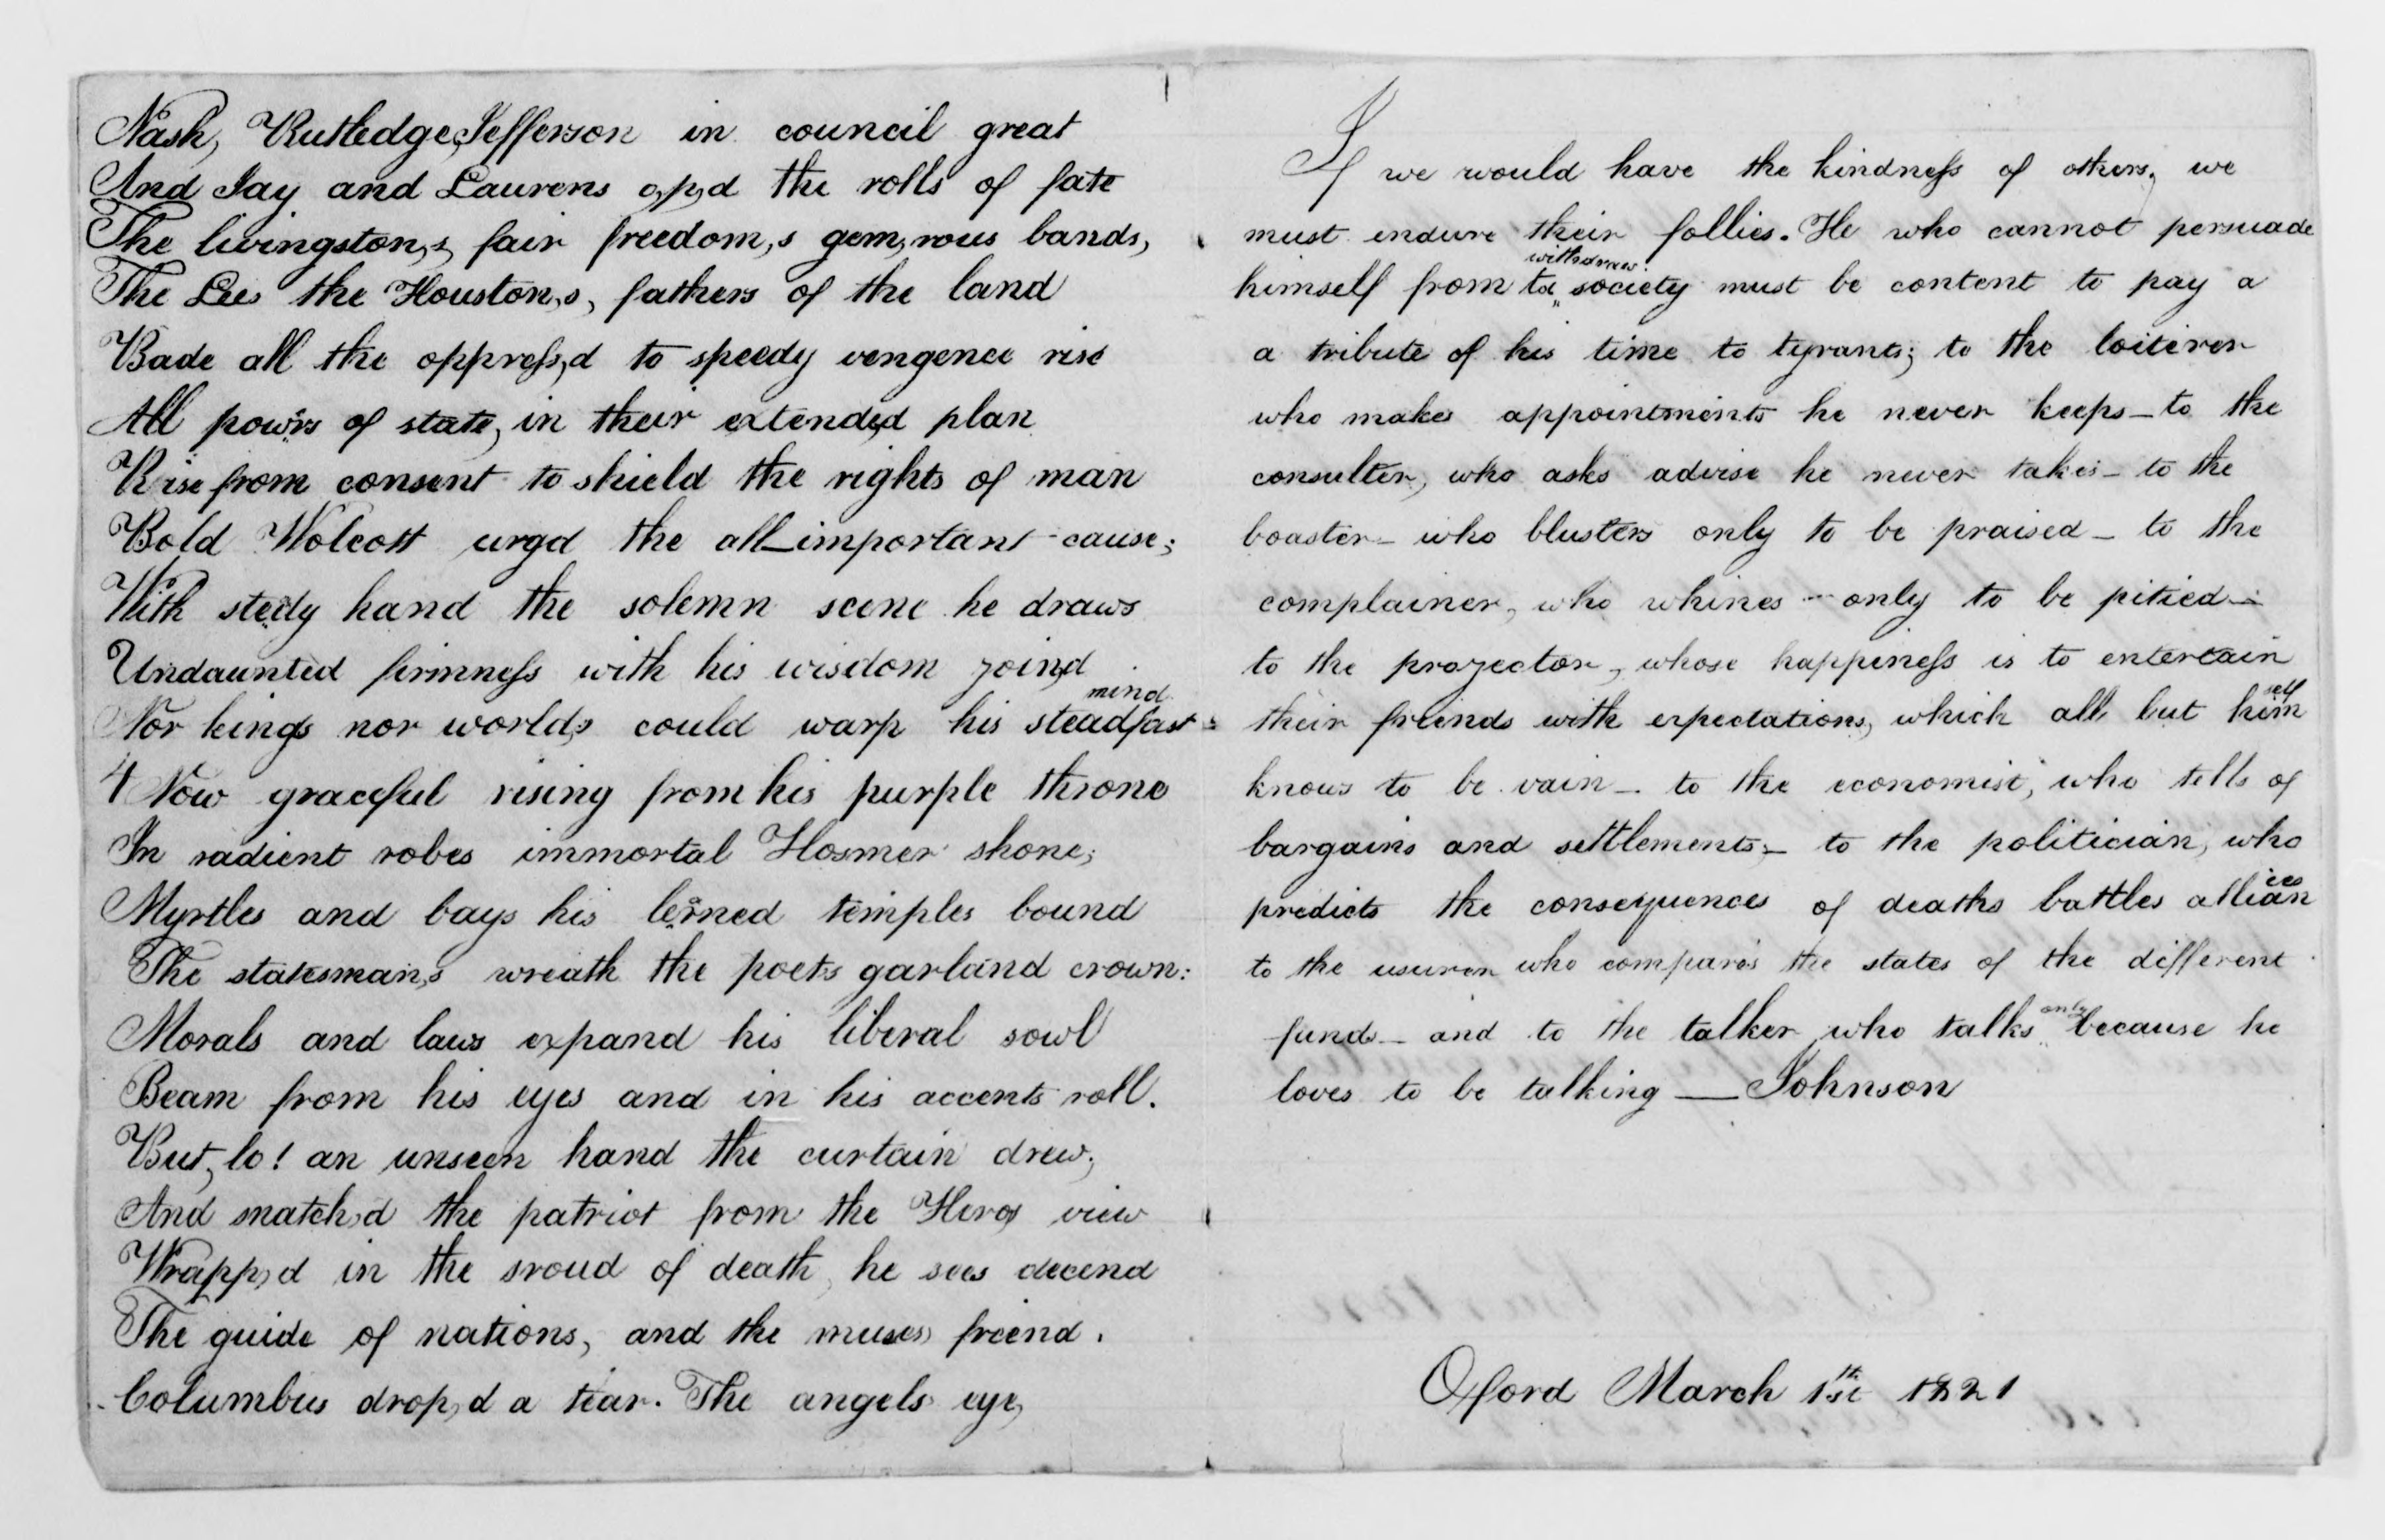 Nash, Rutledge, Jefferson in council great
And Jay and Laurens op,d the rolls of fate
The livingston,s fair freedom,s gem,rous bands,
The Lees the Houston,s, fathers of the land
Bade all the oppress,d to speedy vengence rise
All pow'rs of state, in their extended plan
Rise from consent to shield the rights of man
Bold Wolcott urgd the all-important cause;
With stedy hand the solemn scene he draws
Undaunted firmness with his wisdom joind
Nor kings nor worlds could warp his steadfast mind.
4 Now graceful rising from his purple throne
In radient robes immortal Hosmer shone;
Myrtles and bays his lerned temples bound
The statesman,s wreath the poets garland crown:
Morals and laws expand his liberal sowl
Beam from his eyes and in his accents roll.
But, lo! an unseen hand the curtain drew;
And snatch,d the patriot from the Heros view
Wrapp,d in the sroud of death, he sees decend
The guide of nations, and the muses friend.
Columbus drop,d a tear. The angels eye,
If we would have the kindness of others, we
must endure their follies. He who cannot persuade
himself from to withdraw society must be content to pay a
a tribute of his time to tyrants; to the loiterer
who makes appointments he never keeps - to the
consulter, who asks advise he never takes - to the
boaster - who blusters only to be praised - to the
complainer, who whines - only to be pitied -
to the projector, whose happiness is to entertain
their friends with expectations, which all but himself
knows to be vain - to the economist, who tells of
bargains and settlements; - to the politician, who
predicts the consequences of deaths battles alliances
to the usurer who compares the states of the different
funds - and to the talker, who talks only because he
loves to be talking — Johnson
Oxford March 1st 1821